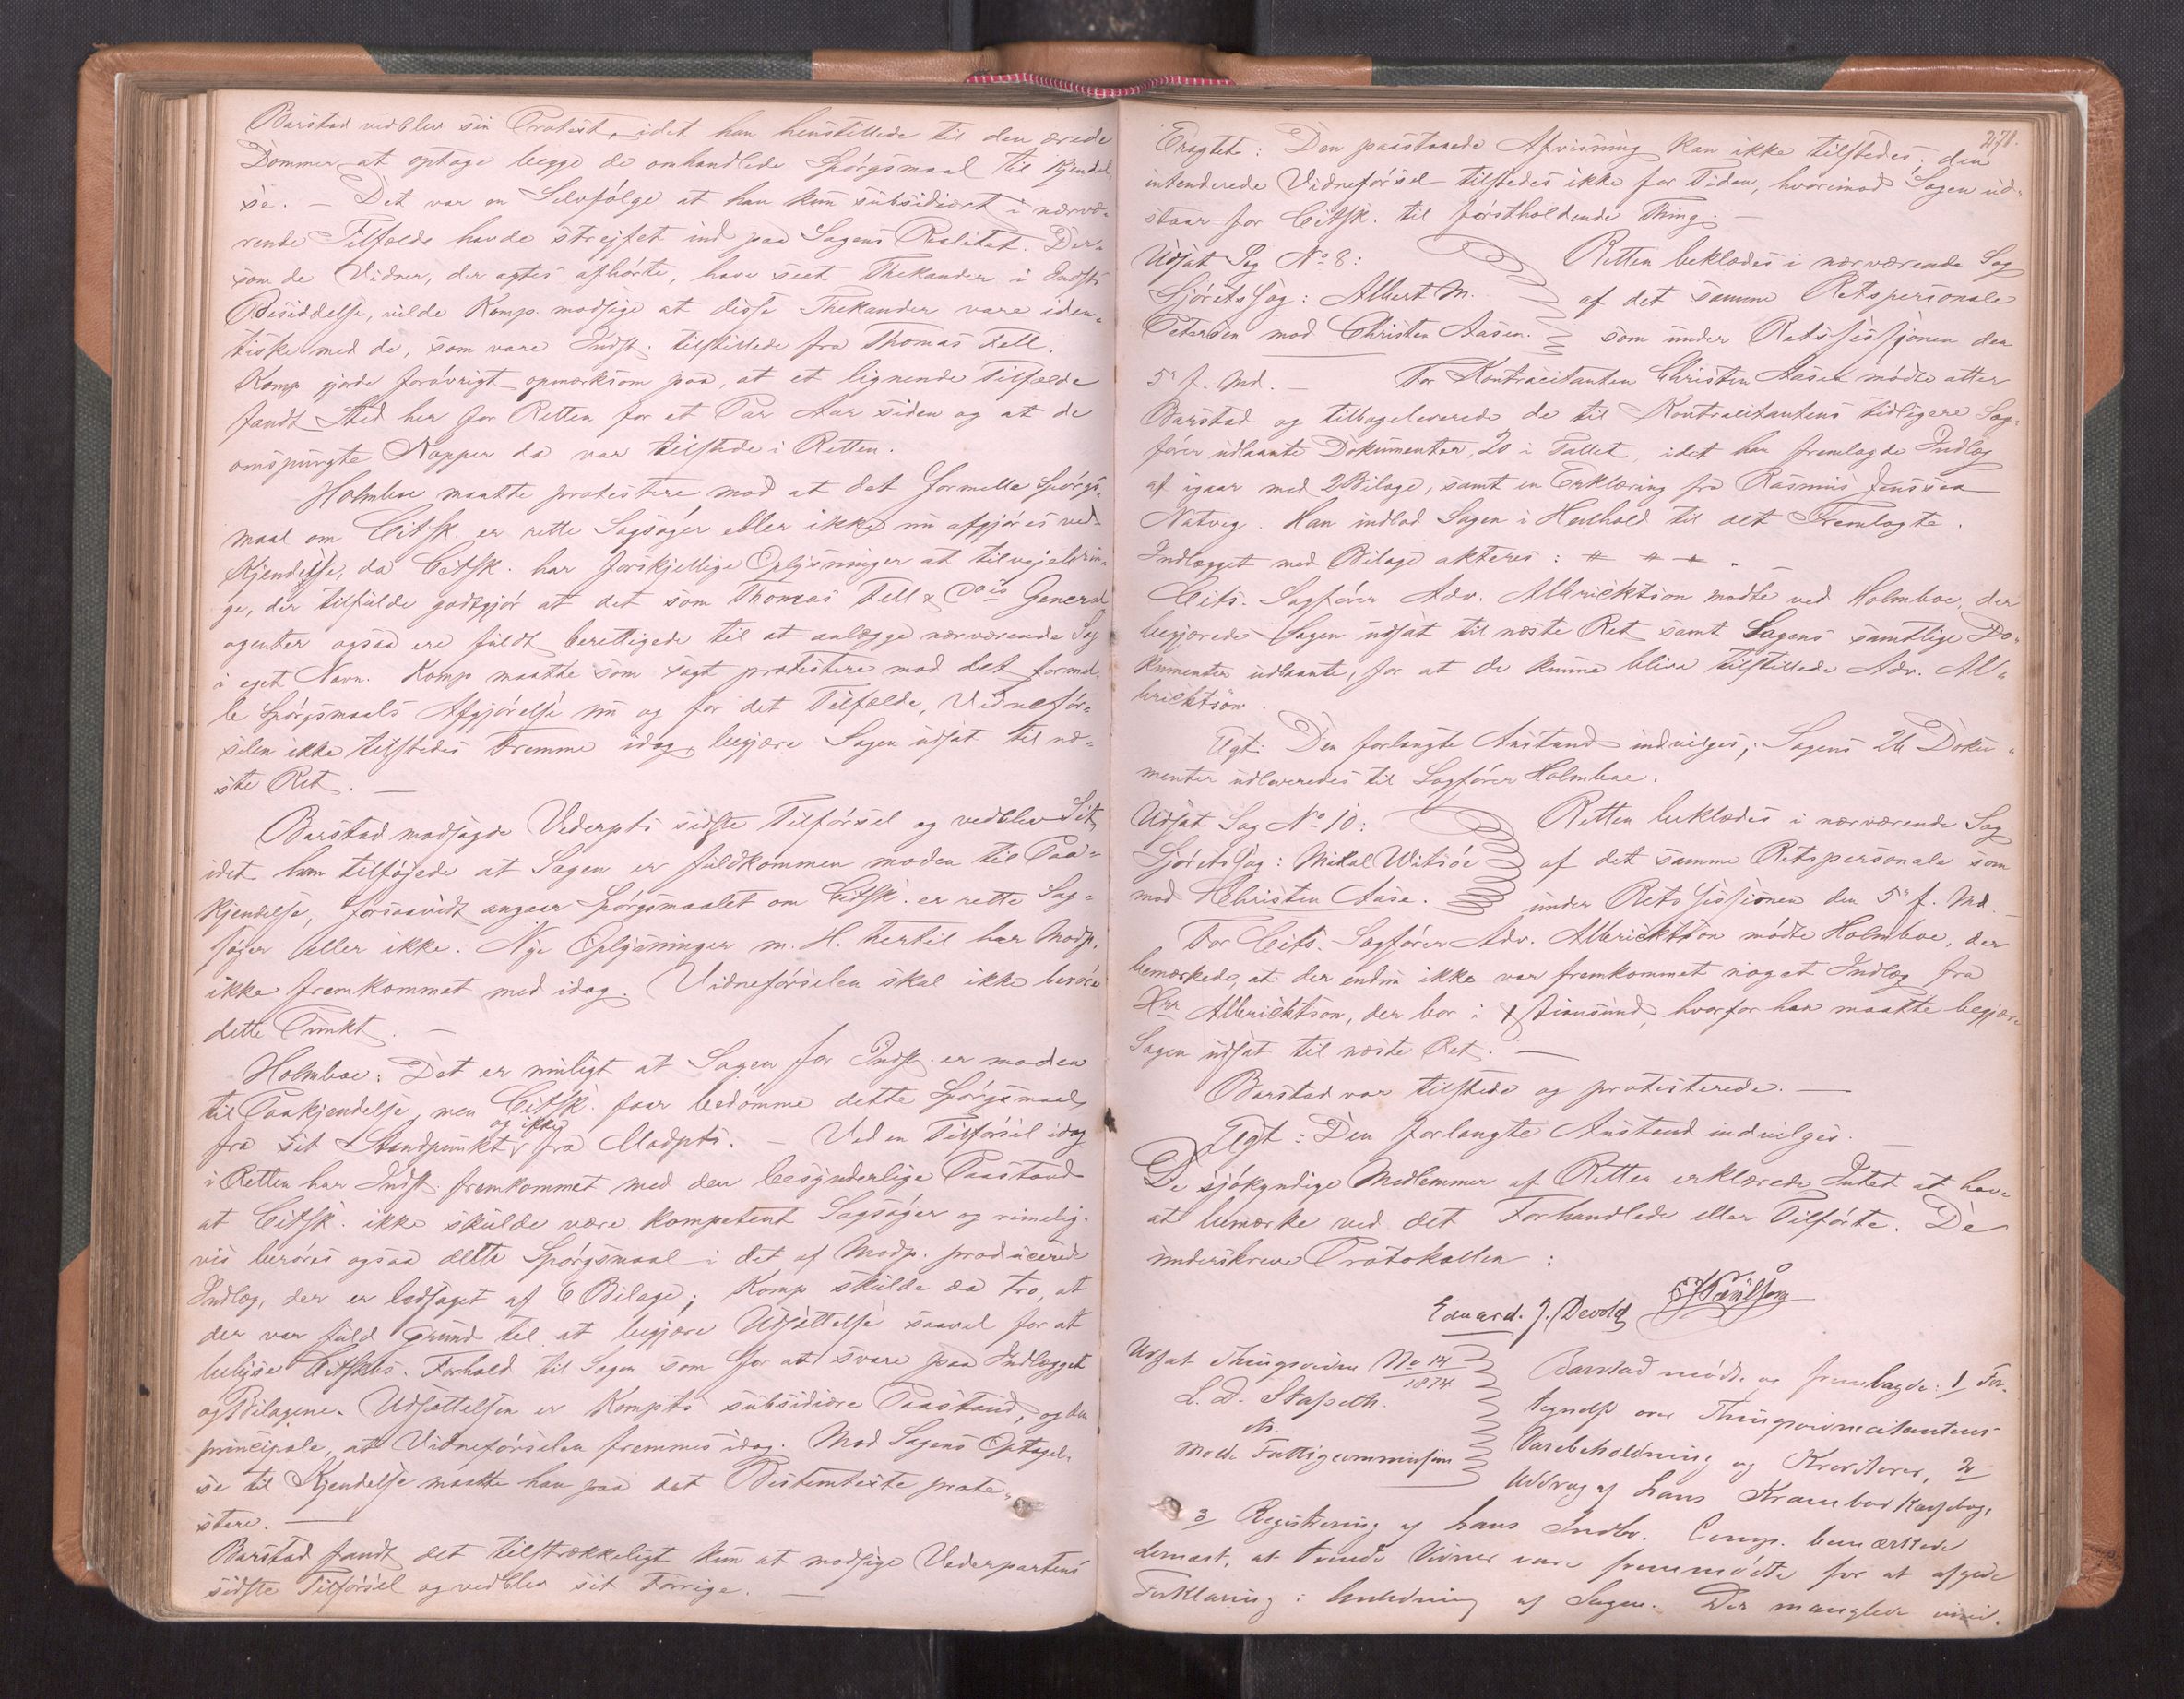 Barstad vedblev sin Protest, idet han henstillede til den ærede
Dommer at optage begge de omhandlede Spørgsmaal til Kjendel,
se. — Det var en Selvfølge at han kun subsidiært i nærvæ-
rende Tilfælde havde strejfet ind paa Sagens Realitet. Der-
som de Vidner, der agtes afhørte, have seet Thekander i Indst's
Besiddelse, vilde Komp. modsige at disse Thekander vare iden-
tiske med de, som vare Indst. tilstillede fra Thomas Fell.
Komp gjorde forøvrigt opmærksom paa, at et lignende Tilfælde
fandt Sted her for Retten for et Par Aar siden og at de
omspurgte Kopper da var tilstede i Retten.
Holmboe maatte protestere mod at det formelle Spørgs-
maal om Citsk. er rette Sagsøger eller ikke nu afgjøres ved
Kjendelse, da Citsk. har forskjellige Oplysninger at tilvejebrin-
ge, der tilfulde godtgjør at det som Thomas Fell & Co's General
agenter ogsaa ere fuldt berettigede til at anlægge nærværende Sag
i eget Navn. Komp maatte som sagt protestere mod det formel-
le Spørgsmaals Afgjørelse nu og for det Tilfælde, Vidneför-
selen ikke tilstedes Fremme idag, begjære Sagen udsat til næ-
ste Ret. —
Barstad modsagde Vederpts sidste Tilførsel og vedblev Sit,
idet han tilføjede at Sagen er fuldkommen moden til Paa-
kjendelse, forsaavidt angaar Spørgsmaalet om Citsk. er rette Sag-
søger eller ikke. Nye Oplysninger m. H. hertil har Modp.
ikke fremkommet med idag. Vidneførselen skal ikke berøre
dette Punkt. —
Holmboe: Det er muligt at Sagen for Indst. er moden
til Paakjendelse, men Citsk. faar bedømme dette Spørgsmaal
fra sit Standpunkt og ikke fra Modpts. — Ved en Tilførsel idag
i Retten har Indst. fremkommet med den besynderlige Paastand
at Citsk. ikke skulde være kompetent Sagsøger og rimelig-
vis berøres ogsaa dette Spørgsmaal i det af Modp. producerede
Indlæg, der er ledsaget af 6 Bilage; Komp skulde da tro, at
der var fuld Grund til at begjære Udsættelse saavel for at
belyse Citskts. Forhold til Sagen som for at svare paa Indlægget
og Bilagene. Udsættelsen er Kompts subsidiære Paastand, og den
principale, at Vidneførselen fremmes idag. Mod Sagens Optagel-
se til Kjendelse maatte han paa det Bestemteste prote-
stere. —
Barstad fandt det tilstrækkeligt kun at modsige Vederpartens
sidste Tilførsel og vedblev sit Forrige. —
278.
Eragtet: Den paastaaede Afvisning kan ikke tilstedes; den
intenderede Vidneførsel tilstedes ikke for Tiden, hvorimod Sagen ud-
staar for Citsk. til førstholdende Thing. —
Udsat Sag No 8:
Sjøretssag: Albert M.
Petersen mod Christen Aasen.
Retten beklædes i nærværende Sag
af det samme Retspersonale
som under Retssessjonen den
5te f. Md. — For Kontracitanten Christen Aasen mødte atter
Barstad og tilbageleverede de til Kontracitantens tidligere Sag-
fører udlaante Dokumenter, 20 i Tallet, idet han fremlagde Indlæg
af igaar med 2 Bilage, samt en Erklæring fra Rasmus Jenssen
Natvig. Han indlod Sagen i Henhold til det Fremlagte.
Indlægget med Bilage akteres: # # #. —
Cits. Sagfører Adv. Albricktson mødte ved Holmboe, der
begjærede Sagen udsat til næste Ret samt Sagens samtlige Do-
kumenter udlaante, for at de kunne blive tilstillede Adv. Al-
bricktson.
Egt: Den forlangte Anstand indvilges; Sagens 26 Doku-
menter udleveredes til Sagfører Holmboe.
Udsat Sag No 10:
Sjøretssag: Mikal Witsøe
mod Christen Aase.
Retten beklædes i nærværende Sag
af det samme Retspersonale som
under Retssessionen den 5te f. Md.
For Cits. Sagfører Adv. Albricktson mødte Holmboe, der
bemærkede, at der endnu ikke var fremkommet noget Indlæg fra
Hrr Albricktson, der bor i Xstiansund, hvorfor han maatte begjære
Sagen udsat til næste Ret. —
Barstad var tilstede og protesterede. —
Egt: Den forlangte Anstand indvilges. —
De sjøkyndige Medlemmer af Retten erklærede Intet at have
at bemærke ved det Forhandlede eller Tilførte. De
underskreve Protokollen:
Eduard. J. Devold
Udsat Thingsvidne No 14/1874
L. D. Stafseth
ctr.
Molde Fattigcommission
Barstad mødte og fremlagde: 1/ For-
tegnelse over Thingsvidnecitantens
Varebeholdning og Kreditorer, 2/
Uddrag af hans Krambod Kassebog,
3/ Registrering af hans Indbo. Comp. bemærkede
dernæst, at tvende Vidner vare fremmødte for at afgive
Forklaring i Anledning af Sagen. Der manglede